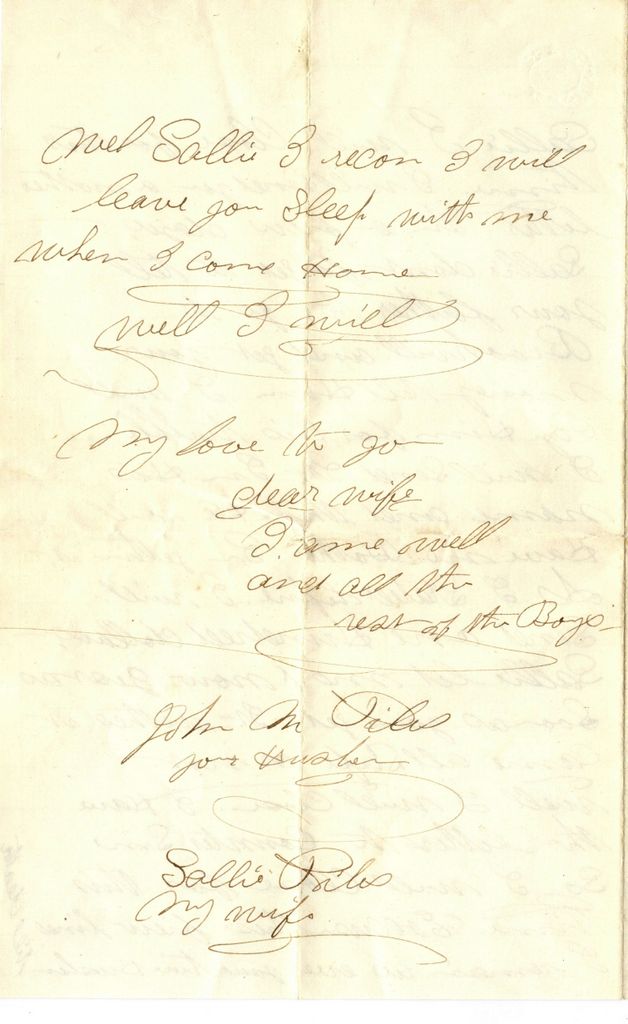 Well Sallie I recon I will
leave you Sleep with me
when I come Home
will I will
My love to you
dear wife
I ame well
and all the
rest of the Boys
John M Piles
your Husben
Sallie Piles
My wife